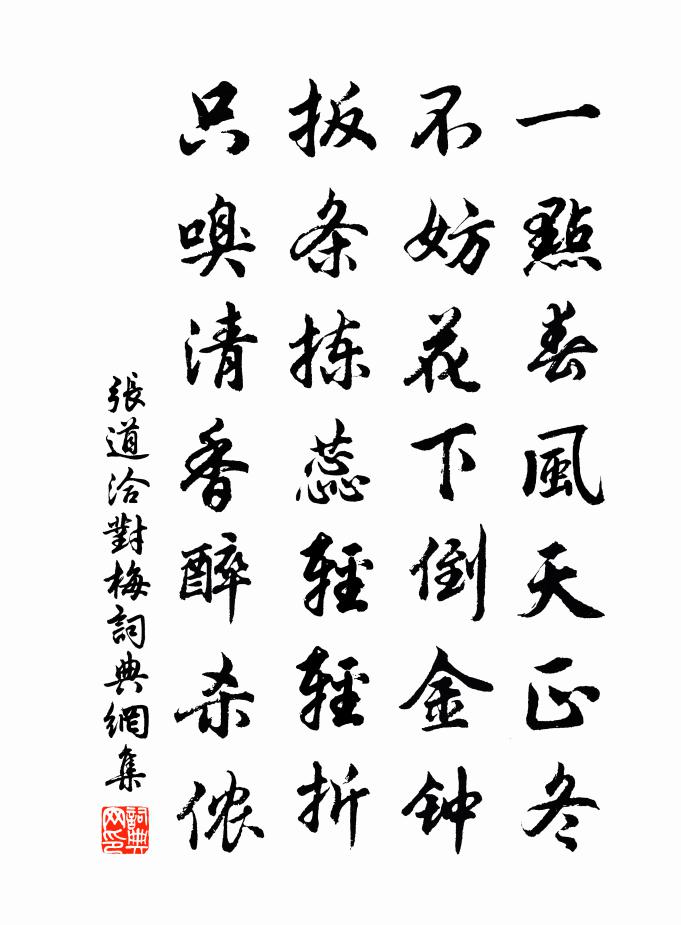 一點春風天正冬
不妨花下倒金钟
扳条拣蕊輕輕折
只嗅清香醉杀侬
張道洽對梅詞典網集
詞典网印